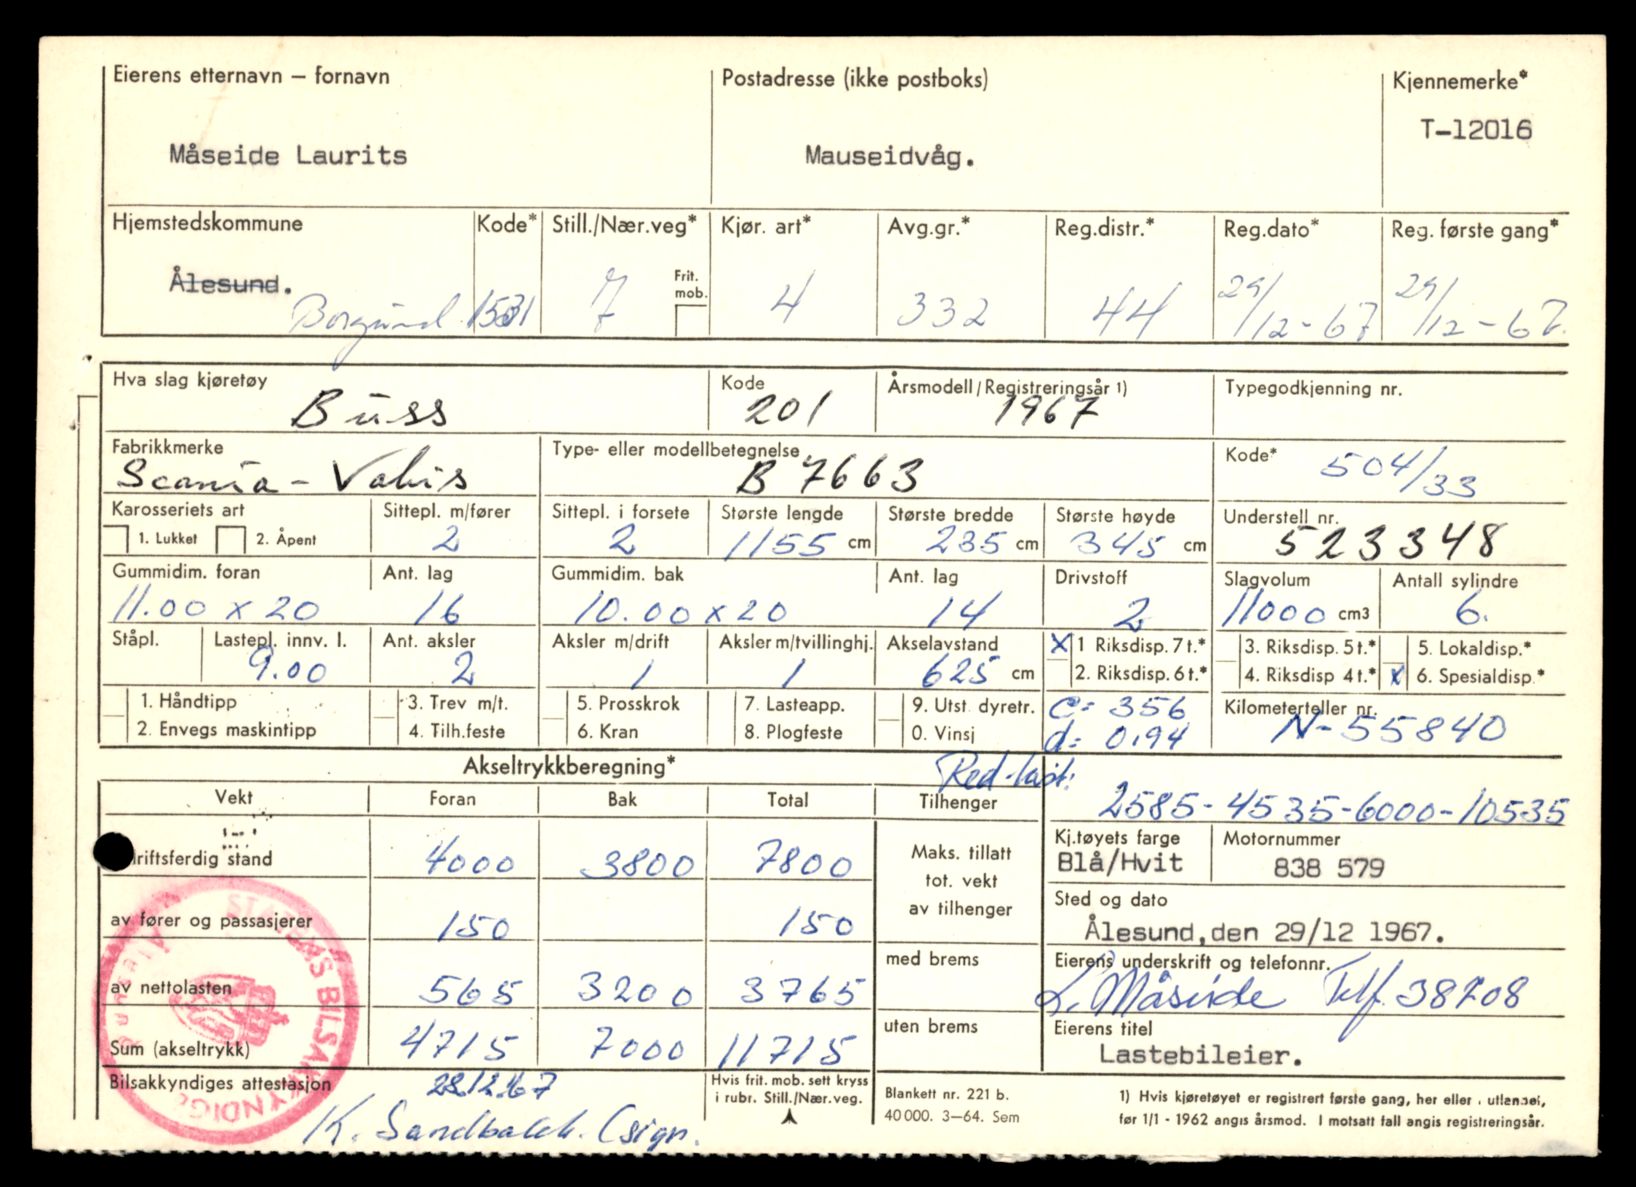 Eierens etternavn – fornavn Postadresse (ikke postboks) Kjennemerke*
T-12016
Måseide Laurits Mauseidvåg.
Hjemstedskommune Kode* Still./Nær.veg* Kjør. art* Avg.gr.* Reg.distr.* Reg.dato* Reg. første gang*
Ålesund. Frit. mob.
Borgund 1531 7 4 332 44 29/12-67 29/12-67.
Hva slag kjøretøy Kode Årsmodell/Registreringsår 1) Typegodkjenning nr.
Buss 201 1967
Fabrikkmerke Type- eller modellbetegnelse Kode*
Scania-Vabis B 7663 504/33
Karosseriets art Sittepl. m/fører Sittepl. i forsete Største lengde Største bredde Største høyde Understell nr.
1. Lukket 2. Åpent 2 2 1155 cm 235 cm 345 cm 523348
Gummidim. foran Ant. lag Gummidim. bak Ant. lag Drivstoff Slagvolum Antall sylindre
11.00 x 20 16 10.00 x 20 14 2 11000 cm3 6.
Ståpl. Lastepl. innv. l. Ant. aksler Aksler m/drift Aksler m/tvillinghj. Akselavstand X 1 Riksdisp. 7 t.* 3. Riksdisp. 5 t.* 5. Lokaldisp.*
9.00 2 1 1 625 cm 2. Riksdisp. 6 t.* 4. Riksdisp 4 t.* x 6. Spesialdisp.*
1. Håndtipp 3. Trev m/t. 5. Prosskrok 7. Lasteapp. 9. Utst. dyretr. C= 356 Kilometerteller nr.
2. Envegs maskintipp 4. Tilh.feste 6. Kran 8. Plogfeste 0. Vinsj d= 0,94 N-55840
Akseltrykkberegning* Red.last:
Vekt Foran Bak Total Tilhenger 2585-4535-6000-10535
Kj.tøyets farge Motornummer
driftsferdig stand 4000 3800 7800 Maks. tillatt Blå/Hvit 838 579
tot. vekt
av tilhenger Sted og dato
av fører og passasjerer 150 150 Ålesund,den 29/12 1967.
med brems Eierens underskrift og telefonnr.
av nettolasten 565 3200 3765 L. Måseide Telf. 38708
uten brems Eierens titel
Sum (akseltrykk) 4715 7000 11715 Lastebileier.
Bilsakkyndiges attestasjon 28.12.67 Hvis frit. mob. sett kryss i rubr. Still./Nær.veg. Blankett nr. 221 b. 1) Hvis kjøretøyet er registrert første gang, her eller i utlandet,
40 000. 3–64. Sem før 1/1 - 1962 angis årsmod. I motsatt fall angis registreringsår.
K. Sandbakk. (sign.
STATENS BILSAKKYNDIGE
Ålesund